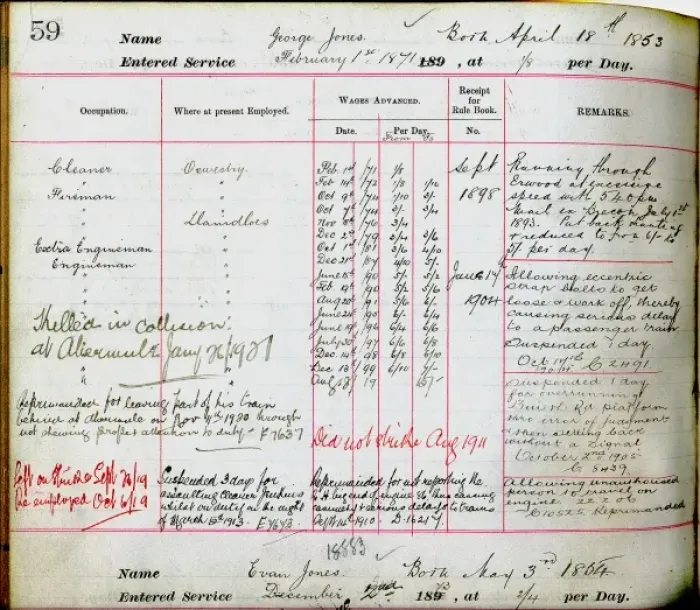 59
Name George Jones. Born April 18th 1853
Entered Service February 1st 1871 189 , at 1/8 per Day.
Occupation. Where at present Employed. Wages Advanced. Receipt for Rule Book. REMARKS.
Date. Per Day. No.
From To
Cleaner Oswestry Feb 1st /71 1/8 Sept
" " Feb 14th /72 1/8 1/10
Fireman " Oct 9th /74 1/10 3/- 1898
" " Oct 7th
" Llanidloes Nov 8th /76 3/4
" " Dec 2nd /79
Extra Engineman " Oct 1st /81 3/6 4/0
Engineman " Dec 21st /87 4/10 5/-
" " June 15th /90 5/- 5/2 June 14th
" " Feb 19th /90 5/2 5/6
" Aug 20th /91 5/6 6/- 1904
June 24th /90 6/- 6/4
June 19th /96 6/4 6/6
July 30th /97 6/6 6/8
Dec 14th /98 6/8 6/10
Dec 13th /99 6/10
Aug 19
Running through
Erwood at excessive
speed with 5.40 pm
Mail ex Brecon July 1st
1893. Put back
& reduced to from 6/- to
5/- per day.
Allowing eccentric
strap bolts to get
loose & work off, thereby
causing serious delay
to a passenger train
Suspended 1 day.
Oct 14th
1904 C 2491
Suspended 1 day
for overrunning
Rd platform
thro error of judgment
& then setting back
without a signal
October 2nd 1905
C 8439
Allowing unauthorised
person to travel on
engine 22.2.06
C10525 Reprimanded
Killed in collision
at Abermule Jany 26/1921
Reprimanded for leaving part of his train
behind at Abermule on Nov 4th 1920 through
not shewing proper attention to duty E7637
Did not strike Aug 1911
Left on Strike Sept 26/19
Re employed Oct 6/19
Suspended 3 days for
assaulting Cleaner
whilst on duty on the night
of March 15th 1913. E7673
Reprimanded for not reporting the
of engine 86 thus causing
& serious delays to trains
Sept 14th 1910 D.16217
18883
Name Evan Jones. Born May 3rd 1864
Entered Service December 2nd 1893 , at 2/4 per Day.